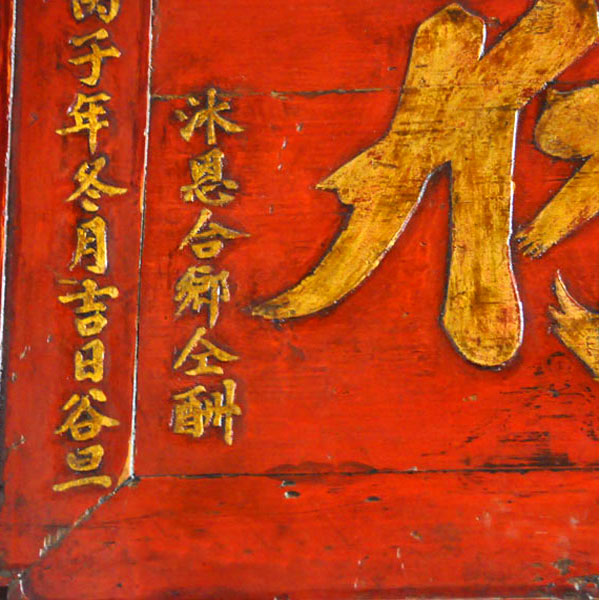 沐恩合鄉仝酬
丙子年冬月吉日谷旦